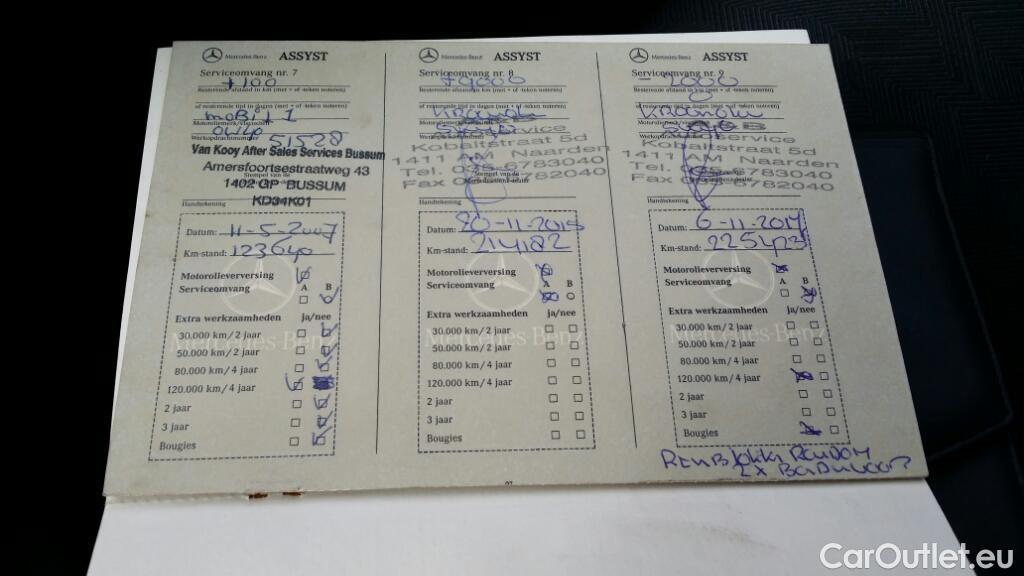 Mercedes-Benz ASSYST
Serviceomvang nr. 7
+100
Resterende afstand in km (met + of -teken noteren)
of resterende tijd in dagen (met + of -teken noteren)
mobil 1
Motoroliemerk/viscositeit
0W40
Werkopdrachtnummer 51528
Van Kooy After Sales Services Bussum
Amersfoortsestraatweg 43
Stempel van de
1402 GP BUSSUM
KD34K01
Handtekening
Datum: 11-5-2007
Km-stand: 123640
Motorolieverversing
Serviceomvang A B
Extra werkzaamheden ja/nee
30.000 km/2 jaar
50.000 km/2 jaar
80.000 km/4 jaar
120.000 km/4 jaar
2 jaar
3 jaar
Bougies
Mercedes-Benz ASSYST
Serviceomvang nr. 8
+9000
Resterende afstand in km (met + of -teken noteren)
of resterende tijd in dagen (met + of -teken noteren)
Service
Kobaltstraat 5d
1411 AM Naarden
Tel. 035-6783040
Stempel van de
Mercedes-Benz-dealer
Handtekening
Datum: 20-11-2015
Km-stand: 214182
Motorolieverversing
Serviceomvang A B
Extra werkzaamheden ja/nee
30.000 km/2 jaar
50.000 km/2 jaar
80.000 km/4 jaar
120.000 km/4 jaar
2 jaar
3 jaar
Bougies
Mercedes-Benz ASSYST
Serviceomvang nr. 9
Resterende afstand in km (met + of -teken noteren)
of resterende tijd in dagen (met + of -teken noteren)
Kobaltstraat 5d
1411 AM Naarden
Handtekening
Datum: 6-11-2017
Km-stand: 225423
Motorolieverversing
Serviceomvang A B
Extra werkzaamheden ja/nee
30.000 km/2 jaar
50.000 km/2 jaar
80.000 km/4 jaar
120.000 km/4 jaar
2 jaar
3 jaar
Bougies
2x
Mercedes-Benz
CarOutlet.eu